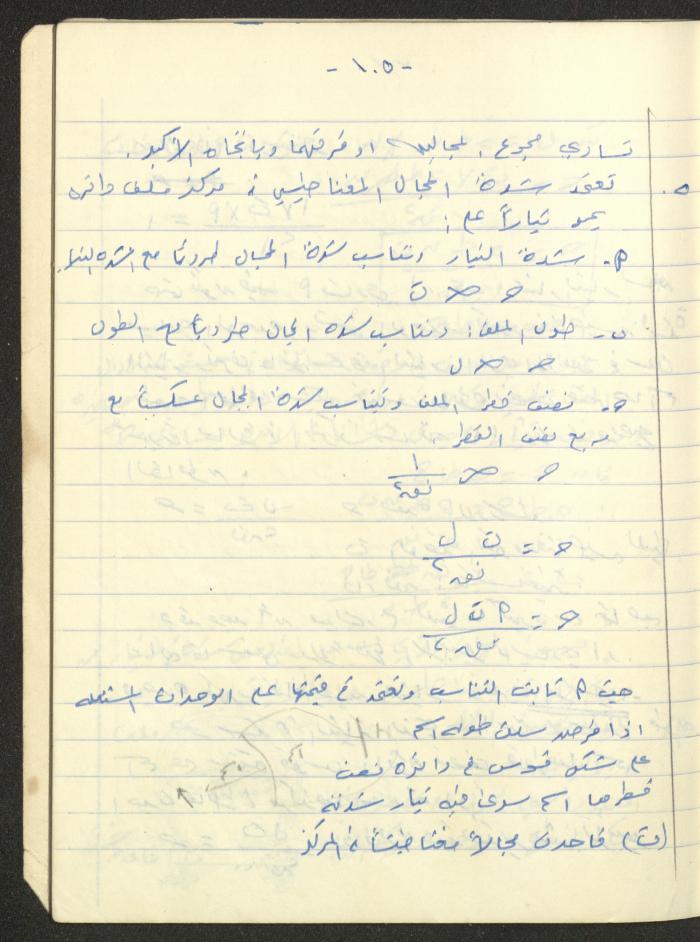 - ١٠٥ -
تساوي مجموع المجالين او فرقهما وباتجاه الأكبر .
٥. تعتمد شدة المجال المغناطيسي في مركز ملف دائري
يمر تياراً على :
٩- شدة التيار وتتناسب شدة المجال طردياً مع شدة التيار
ح ∝ ت
ب- طول الملف : وتتناسب شدة المجال طردياً مع الطول
ح ∝ ل
ح- نصف قطر الملف وتتناسب شدة المجال عكسياً مع
مربع نصف القطر .
ح ∝ ١/نق٢
ح = ت ل/نق٢
ح = ٩ ت ل/نق٢
حيث ٩ ثابت التناسب وتعتمد في قيمتها على الوحدات المستعملة
اذا فرضنا سلك طوله ١سم
على شكل قوس في دائرة نصف
قطرها ١سم سرى فيه تيار شدته
(ت) فاحدث مجالاً مغناطيسياً في المركز